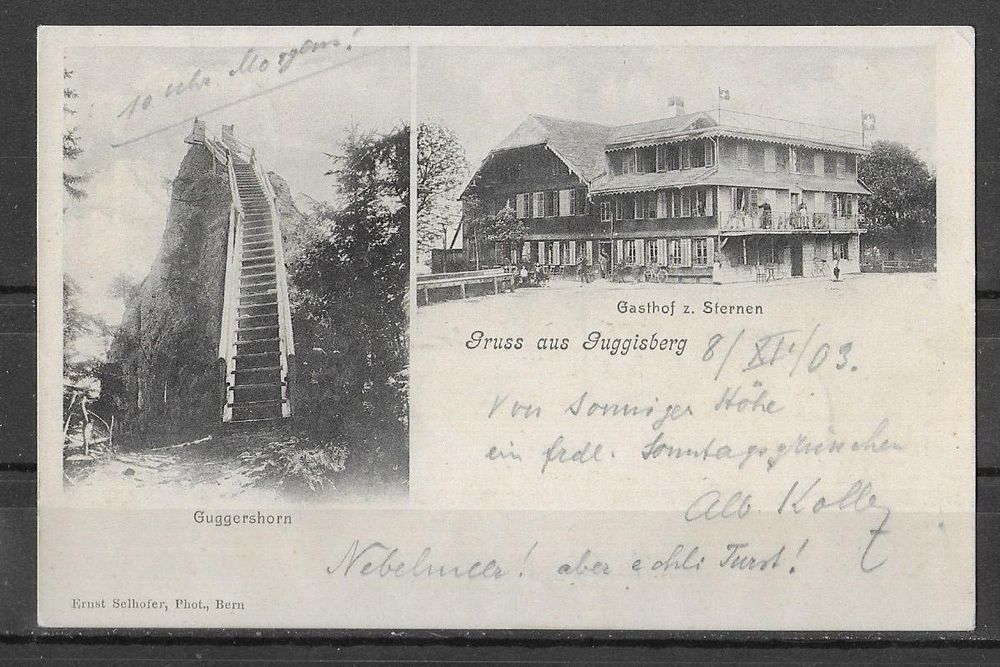 10 Uhr Morgens!
Gasthof z. Sternen
Gruss aus Guggisberg 8/XI./03.
Von sonniger Höhe
ein frdl. Sonntagsgrüsschen
Alb. Kolle
Guggershorn
Nebelmeer! aber echli Turst!
Ernst Selhofer, Phot., Bern